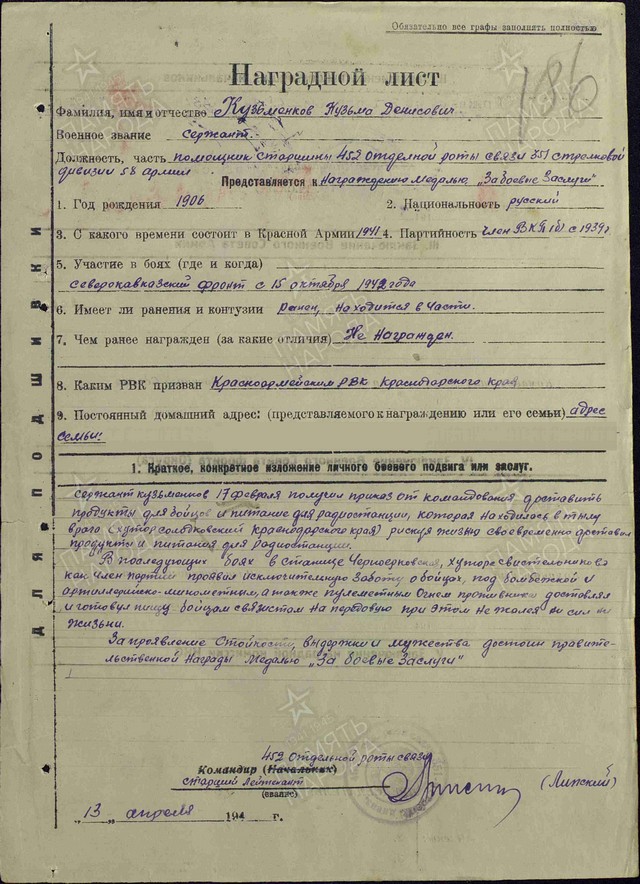 Обязательно все графы заполнять полностью
186
Наградной лист
Фамилия, имя и отчество Кузьменков Кузьма Денисович.
Военное звание Сержант.
Должность, часть помощник старшины 452 отделной роты связи 351 стрелковой
дивизии 58 армии
Представляется к Награждению Медалью „За боевые Заслуги".
1. Год рождения 1906
2. Национальность русский
3. С какого времени состоит в Красной Армии 1941 4. Партийность член ВКП(б) с 1939 г
5. Участие в боях (где и когда)
северокавказский фронт с 15 октября 1942 года
6. Имеет ли ранения и контузии ранен, находится в части.
7. Чем ранее награжден (за какие отличия) Не Награжден.
8. Каким РВК призван Красноармейским РВК Краснодарского края
9. Постоянный домашний адрес: (представляемого к награждению или его семьи) адрес
семьи:
ДЛЯ ПОДШИВКИ
1. Краткое, конкретное изложение личного боевого подвига или заслуг.
сержант кузьменков 17 февраля получил приказ от командования доставить
продукты для бойцов и питание для радиостанции, которая находилось в тылу
врага (хутор краснодарского края) рискуя жизнью своевременно доставил
продукты и питания для радиостанции.
В последующих боях в станице Черноерковская, хуторе свистельников
как член партии проявил исключительную заботу о бойцах, под бомбежкой и
артиллерийско-минометным, а также пулеметным огнем противника доставлял
и готовил пищу бойцам связистом на передовую при этом не жалея ни сил ни
жизьни.
За проявление Стойкости, выдержки и мужества достоин правите-
льственной Награды Медалью „За боевые Заслуги"
452 отдельной роты связи
Командир (Начальник)
старший Лейтенант
(звание)
(Липский)
„13 апреля 194 г.
ПАМЯТЬ НАРОДА